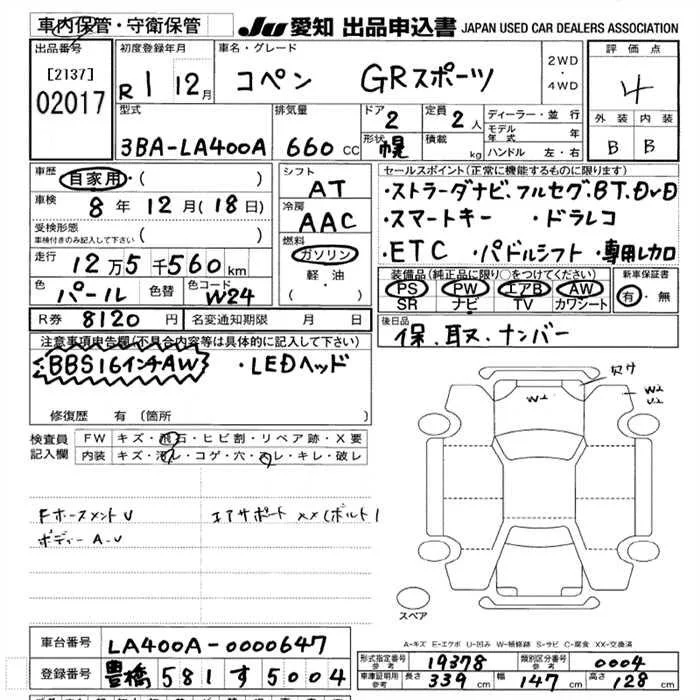 車内保管・守衛保管
JU 愛知 出品申込書 JAPAN USED CAR DEALERS ASSOCIATION
出品番号
[2137]
02017
初度登録年月
R 1 12月
車名・グレード
コペン GRスポーツ
2WD
・
4WD
評価点
4
外装 内装
B B
型式
3BA-LA400A
排気量
660 CC
ドア
2
形状 幌
定員
2人
積載
kg
ディーラー・並行
モデル年式 年
ハンドル 左・右
車歴
自家用・( )
車検
8年12月(18日)
受検形態
車検付きのみ記入して下さい ( )
走行
12万5千560km
色
パール
色替
色コード
W24
シフト
AT
冷房
AAC
燃料
ガソリン
軽油
( )
セールスポイント(正常に機能するものに限ります)
・ストラーダナビ、フルセグ、BT、DVD
・スマートキー ・ドラレコ
・ETC ・パドルシフト ・専用レカロ
装備品(純正品に限り○をつけてください)
PS PW エアB AW
SR ナビ TV カワシート
新車保証書
有・無
R券 8120円 名変通知期限 月 日
後日品
保、取、ナンバー
注意事項申告欄(不具合内容等は具体的に記入して下さい)
・BBS16インチAW ・LEDヘッド
修復歴 有(箇所 )
検査員
記入欄
FW キズ・飛石・ヒビ割・リペア跡・X要
内装 キズ・汚レ・コゲ・穴・スレ・キレ・破レ
FホースメントU
エアサポート XX(ボルト)
ボディーA-U
W2
欠け
W2
U2
スペア
A-キズ E-エクボ U-凹み W-補修跡 S-サビ C-腐食 XX-交換済
車台番号 LA400A-0000647
登録番号 豊橋 581 す 5004
形式指定番号
参考
19378
類別区分番号
参考
0004
車庫証明用
参考
長さ 339cm 幅 147cm 高さ 128cm